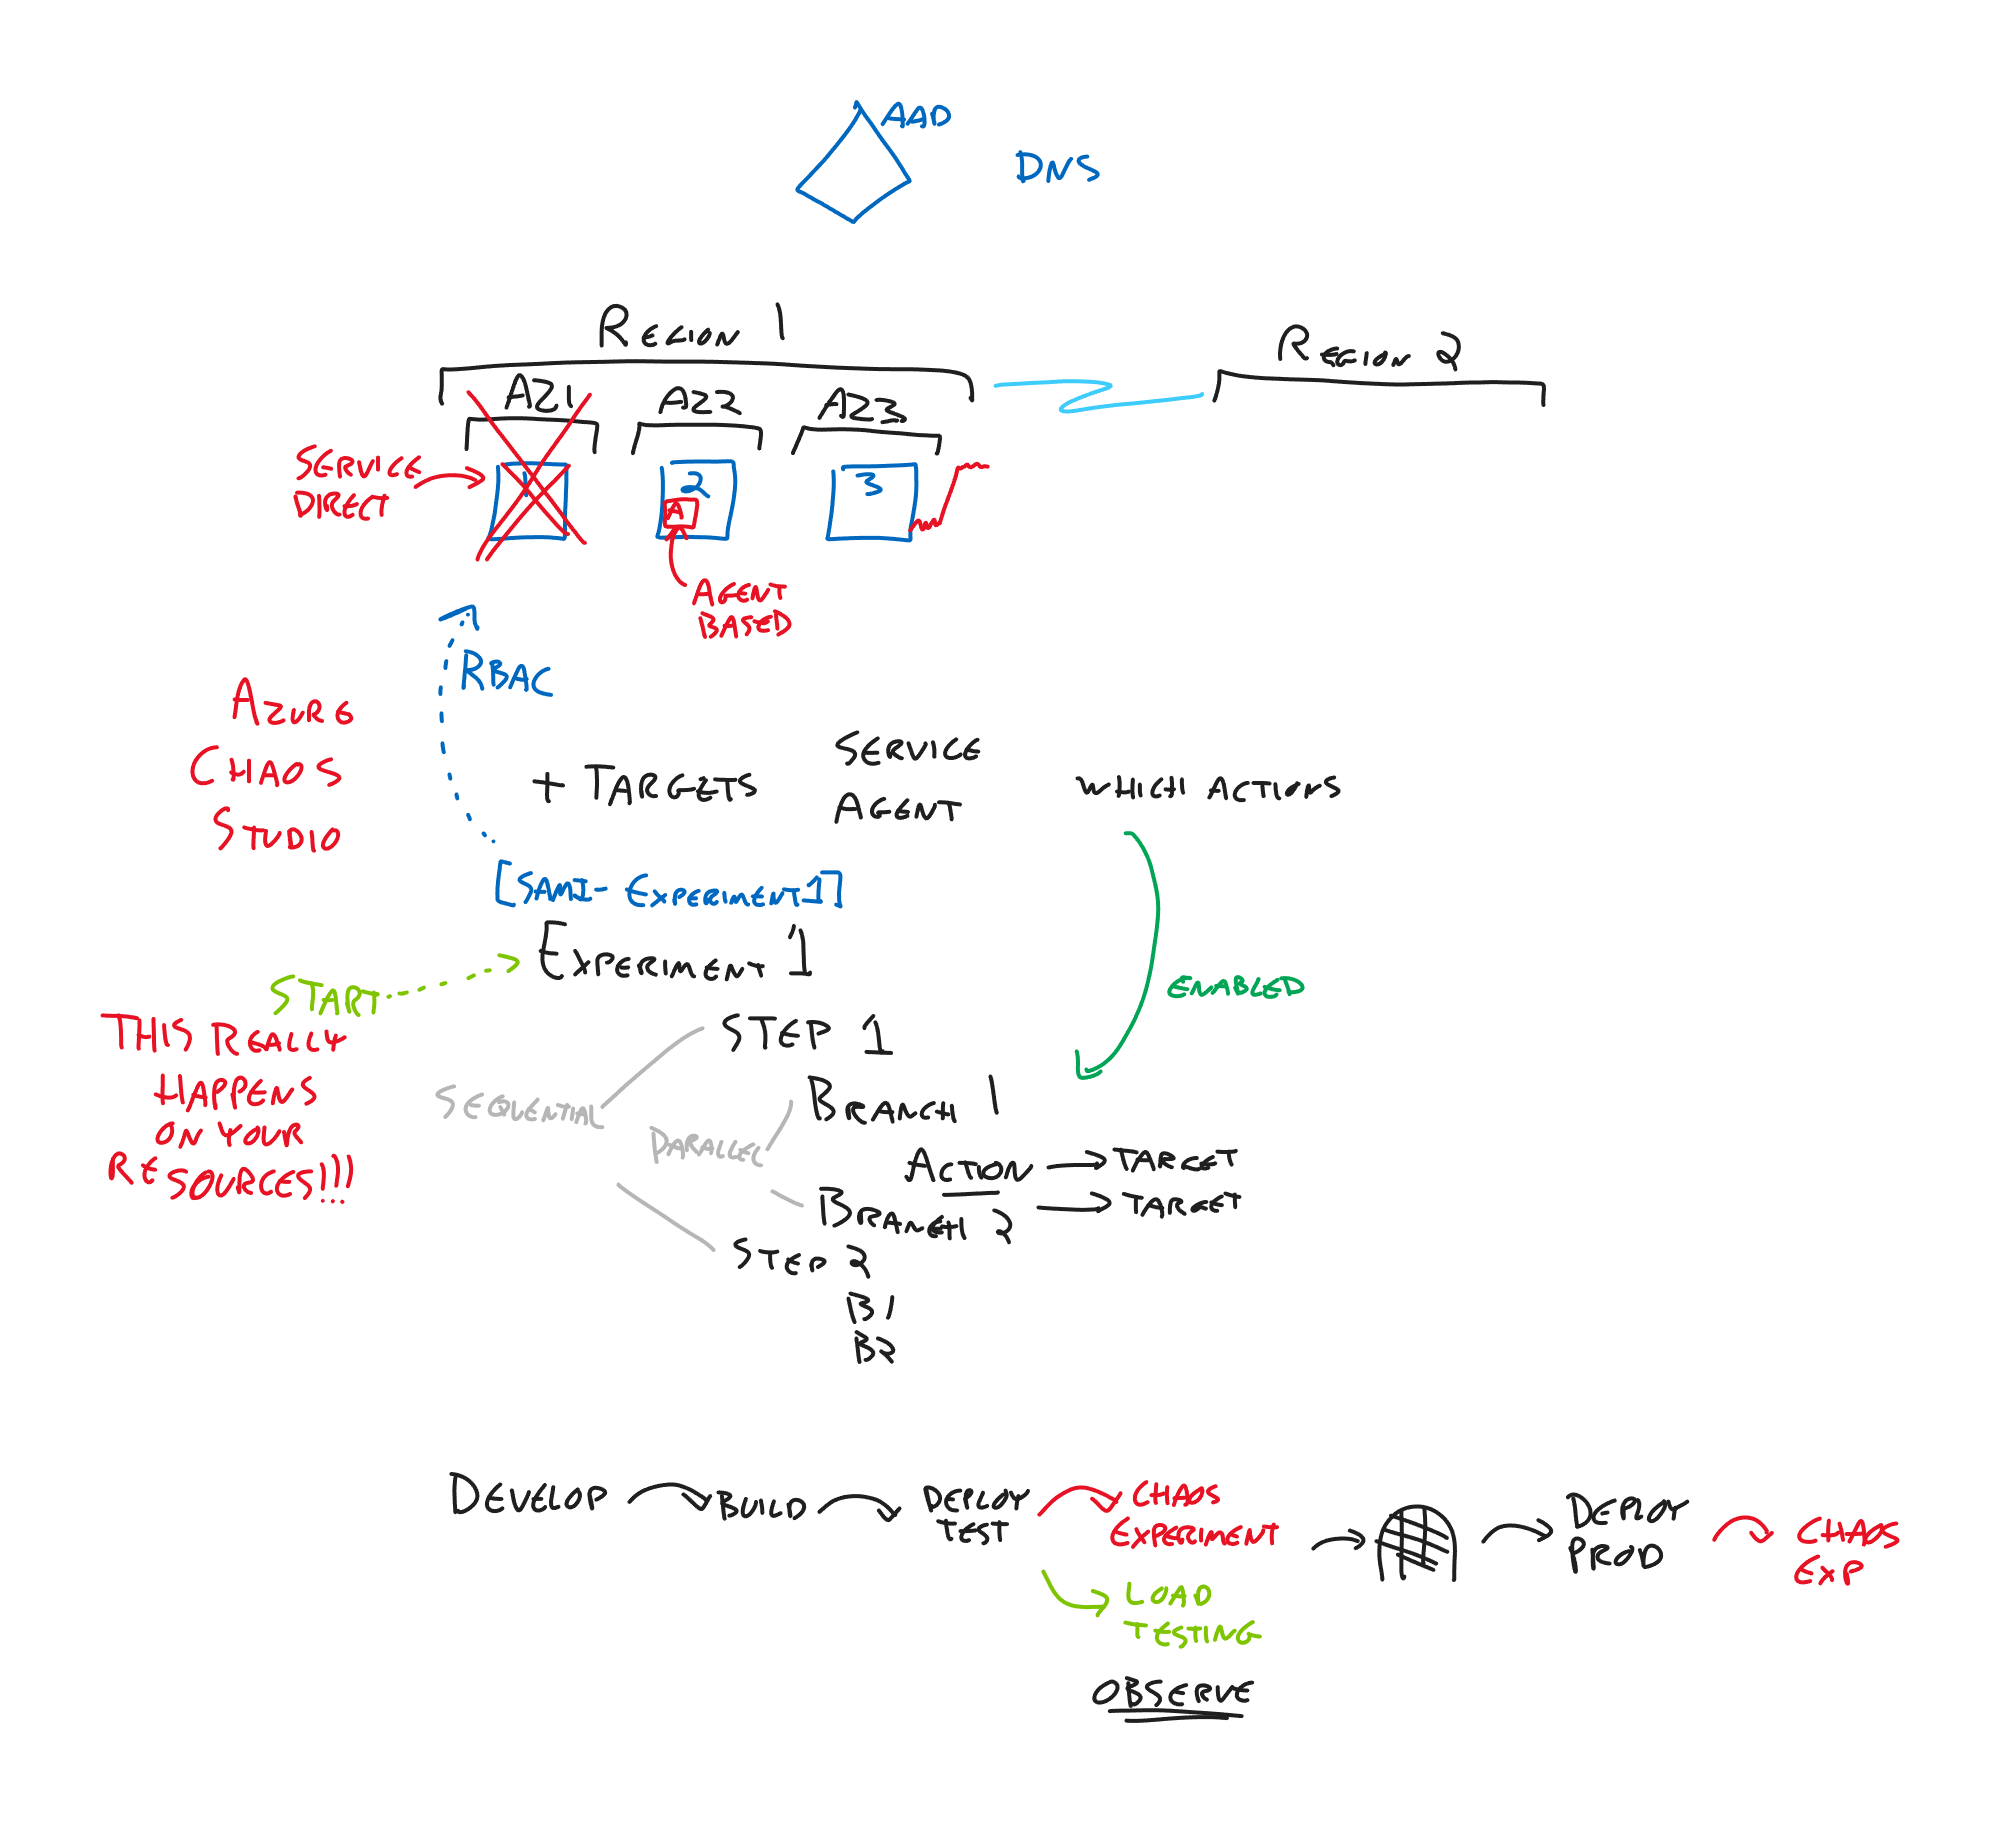 AAD
DNS
REGION 1
REGION 2
AZ1
AZ2
AZ3
SERVICE
DIRECT
1
2
3
A
AGENT
BASED
RBAC
AZURE
CHAOS
STUDIO
+ TARGETS
SERVICE
AGENT
WHICH ACTIONS
[SAMI- EXPERIMENT1]
EXPERIMENT 1
START
ENABLED
THIS REALLY
HAPPENS
ON YOUR
RESOURCES!!!
STEP 1
SEQUENTIAL
BRANCH 1
PARALLEL
ACTION
TARGET
BRANCH 2
TARGET
STEP 2
B1
B2
DEVELOP
BUILD
DEPLOY
TEST
CHAOS
EXPERIMENT
DEPLOY
PROD
CHAOS
EXP
LOAD
TESTING
OBSERVE